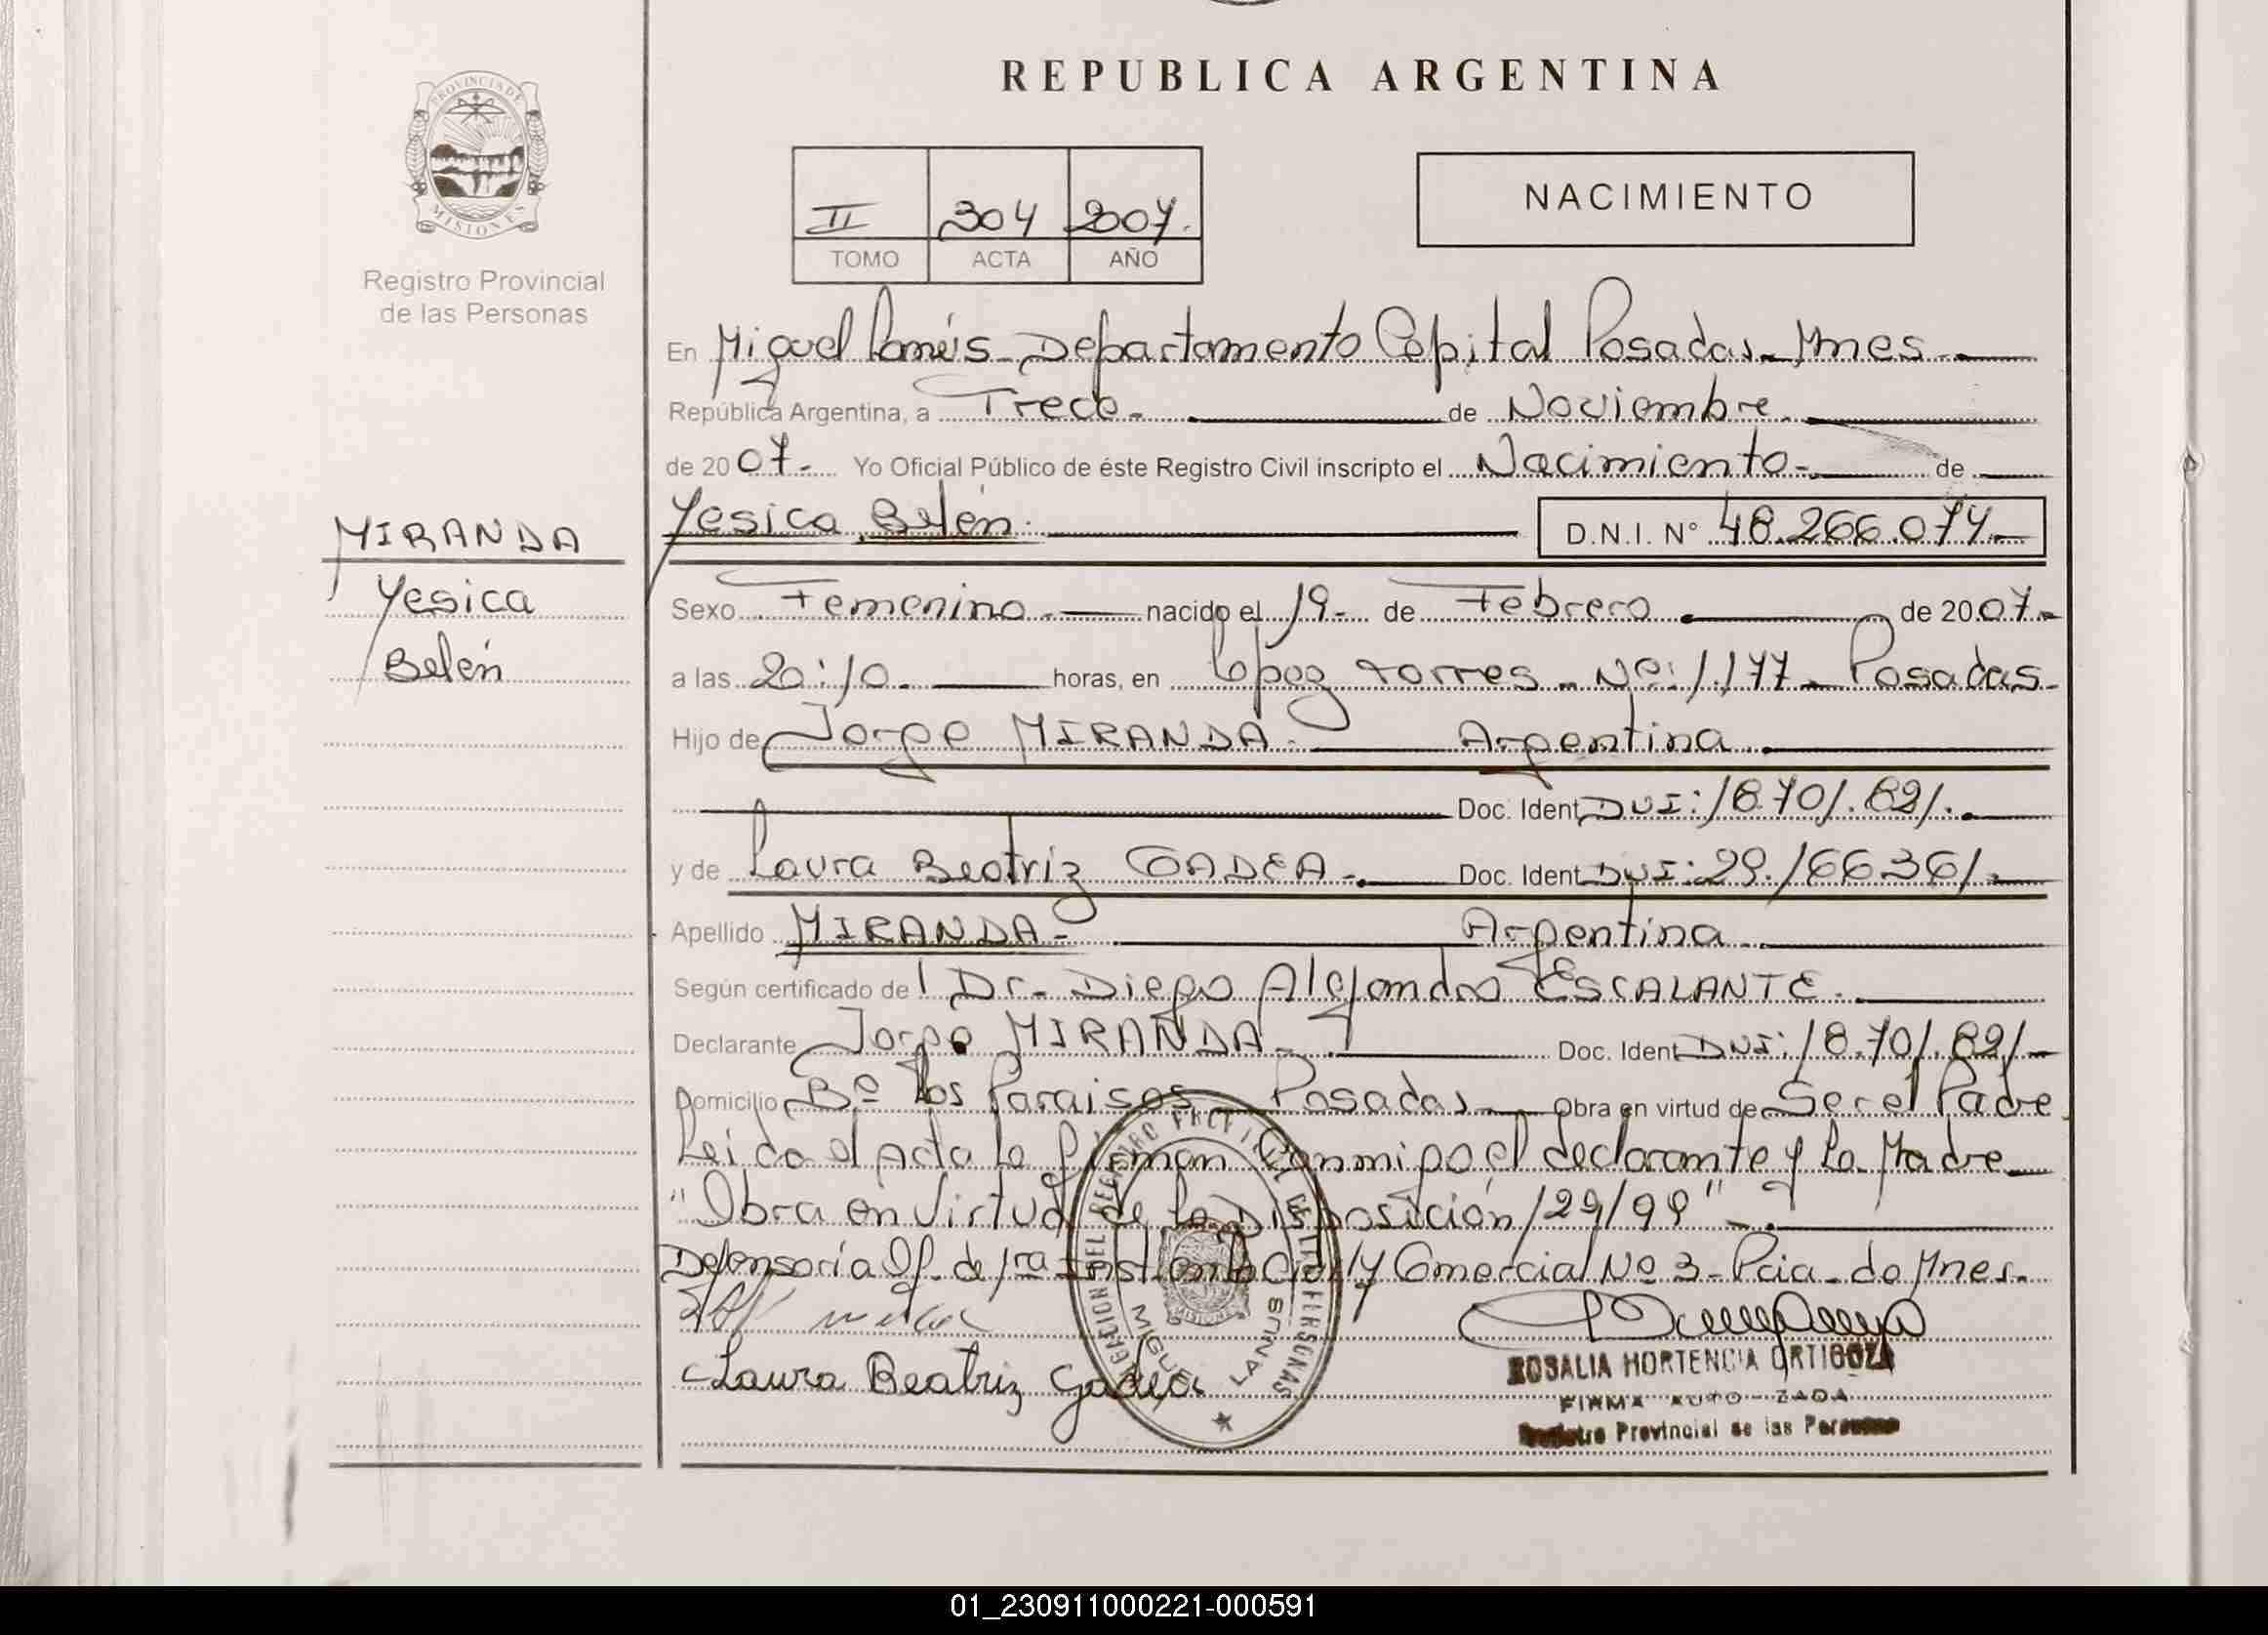 REPUBLICA ARGENTINA
PROVINCIA DE
MISIONES
Registro Provincial
de las Personas
II 304 2007.
TOMO ACTA AÑO
NACIMIENTO
En Miguel Lanús Departamento Capital Posadas - Mnes
República Argentina, a Trece- de Noviembre.
de 2007- Yo Oficial Público de éste Registro Civil inscripto el Nacimiento- de
Yesica Belén. D.N.I. N° 48.266.074-
MIRANDA
Yesica
Belén
Sexo Femenino. nacido el 19- de Febrero de 2007-
a las 20:10. horas, en López torres - Nº: 1.177 - Posadas-
Hijo de Jorge MIRANDA- Argentina
Doc. Ident DNI: 18.701.821.
y de Laura Beatriz GADEA- Doc. Ident DNI: 29.166361.
Apellido MIRANDA- Argentina
Según certificado de l Dr- Diego Alejandro ESCALANTE.
Declarante Jorge MIRANDA- Doc. Ident DNI: 18.701.821-
Domicilio Bº Los Paraisos - Posadas Obra en virtud de Ser el Padre.
Leída el Acta la firman Conmigo el declarante y La Madre
"Obra en Virtud de La Disposición 129/99" -
Defensoría Of. de 1ra Instancia Civil y Comercial Nº 3 - Pcia - de Mnes.
Laura Beatriz Gadea
ROSALIA HORTENCIA ORTIGOZA
FIRMA AUTORIZADA
Registro Provincial de las Personas
01_230911000221-000591